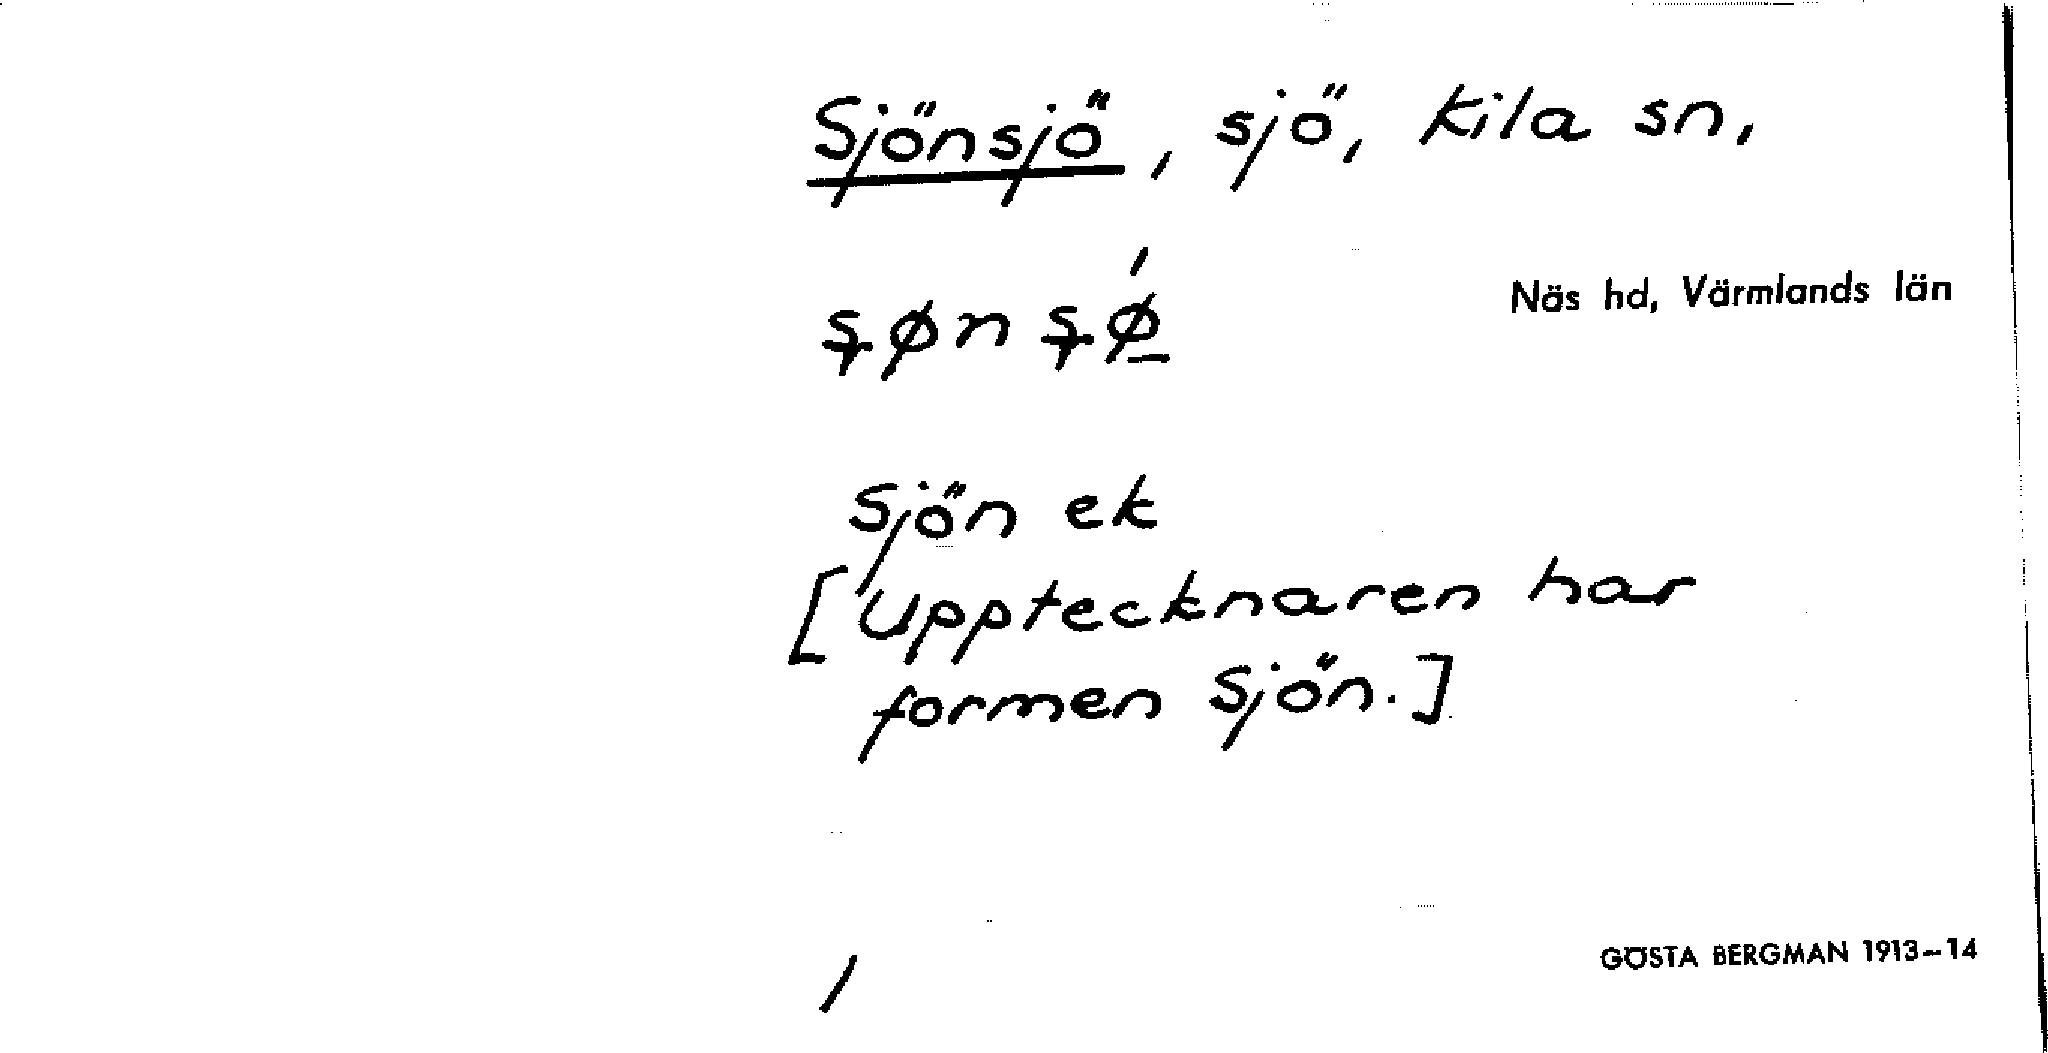 Sjönsjö, sjö, Kila sn,
Näs hd, Värmlands län
Sjön ek
[Upptecknaren har
formen Sjön.]
/
GÖSTA BERGMAN 1913–14